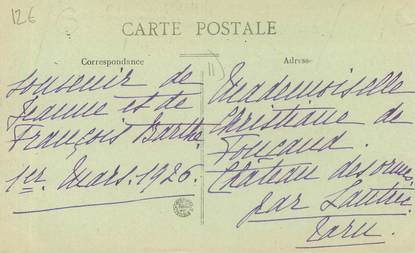 12€
CARTE POSTALE
Correspondance
Adresse
Souvenir de
Jeanne et de
François Barthe
1er Mars. 1926.
Mademoiselle
Christiane de
Foucaud.
Château des ormes
par Lautrec
Tarn.